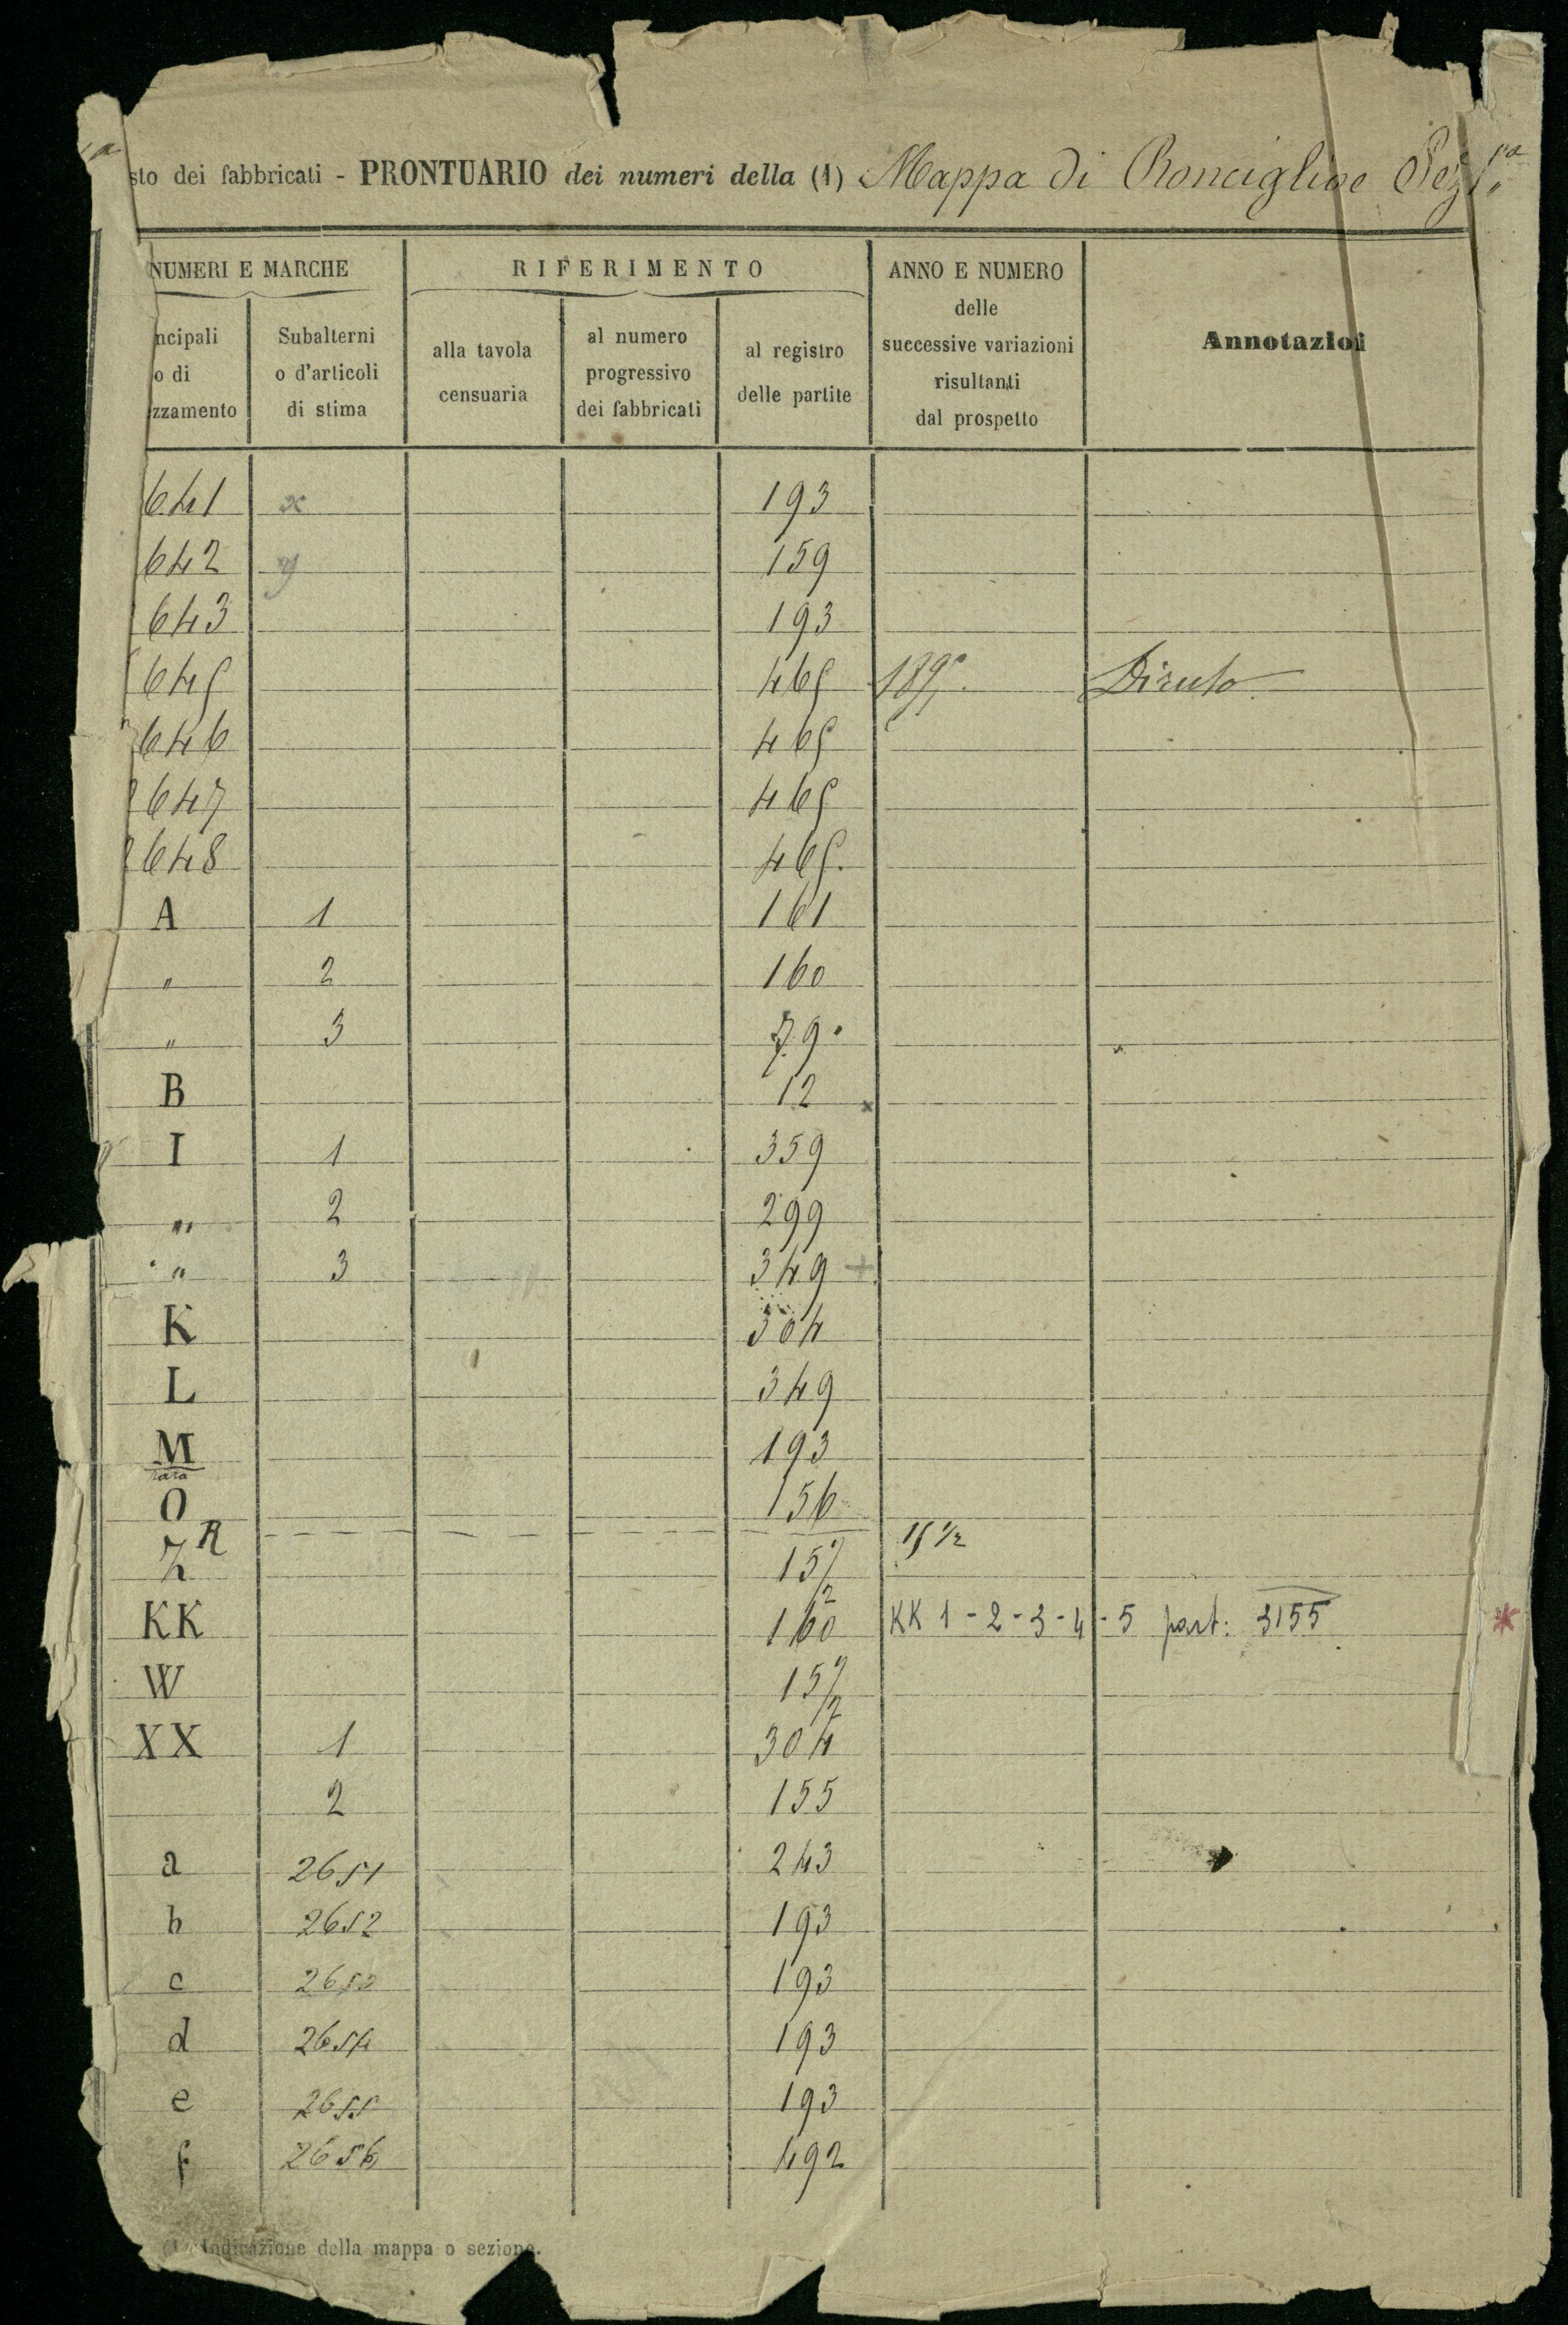 sto dei fabbricati - PRONTUARIO dei numeri della (1) Mappa di Ronciglione Sez. 1ª
NUMERI E MARCHE
RIFERIMENTO
ANNO E NUMERO
delle
successive variazioni
risultanti
dal prospetto
Annotazioi
ncipali
o di
zzamento
Subalterni
o d'articoli
di stima
alla tavola
censuaria
al numero
progressivo
dei fabbricati
al registro
delle partite
641 x 193
642 y 159
643 193
645 465 Diruto
646 465
647 465
648 465.
A 1 161
" 2 160
" 3 79
B 12 x
I 1 359
" 2 299
" 3 349 +
K 304
L 349
M 193
O 156
R
Z 157/2
KK 160 KK 1-2-3-4-5 part: 3155 *
W 157/2
XX 1 304
2 155
a 2651 243
b 2652 193
c 2653 193
d 2654 193
e 2655 193
f 2656 492
(1) Indicazione della mappa o sezione.